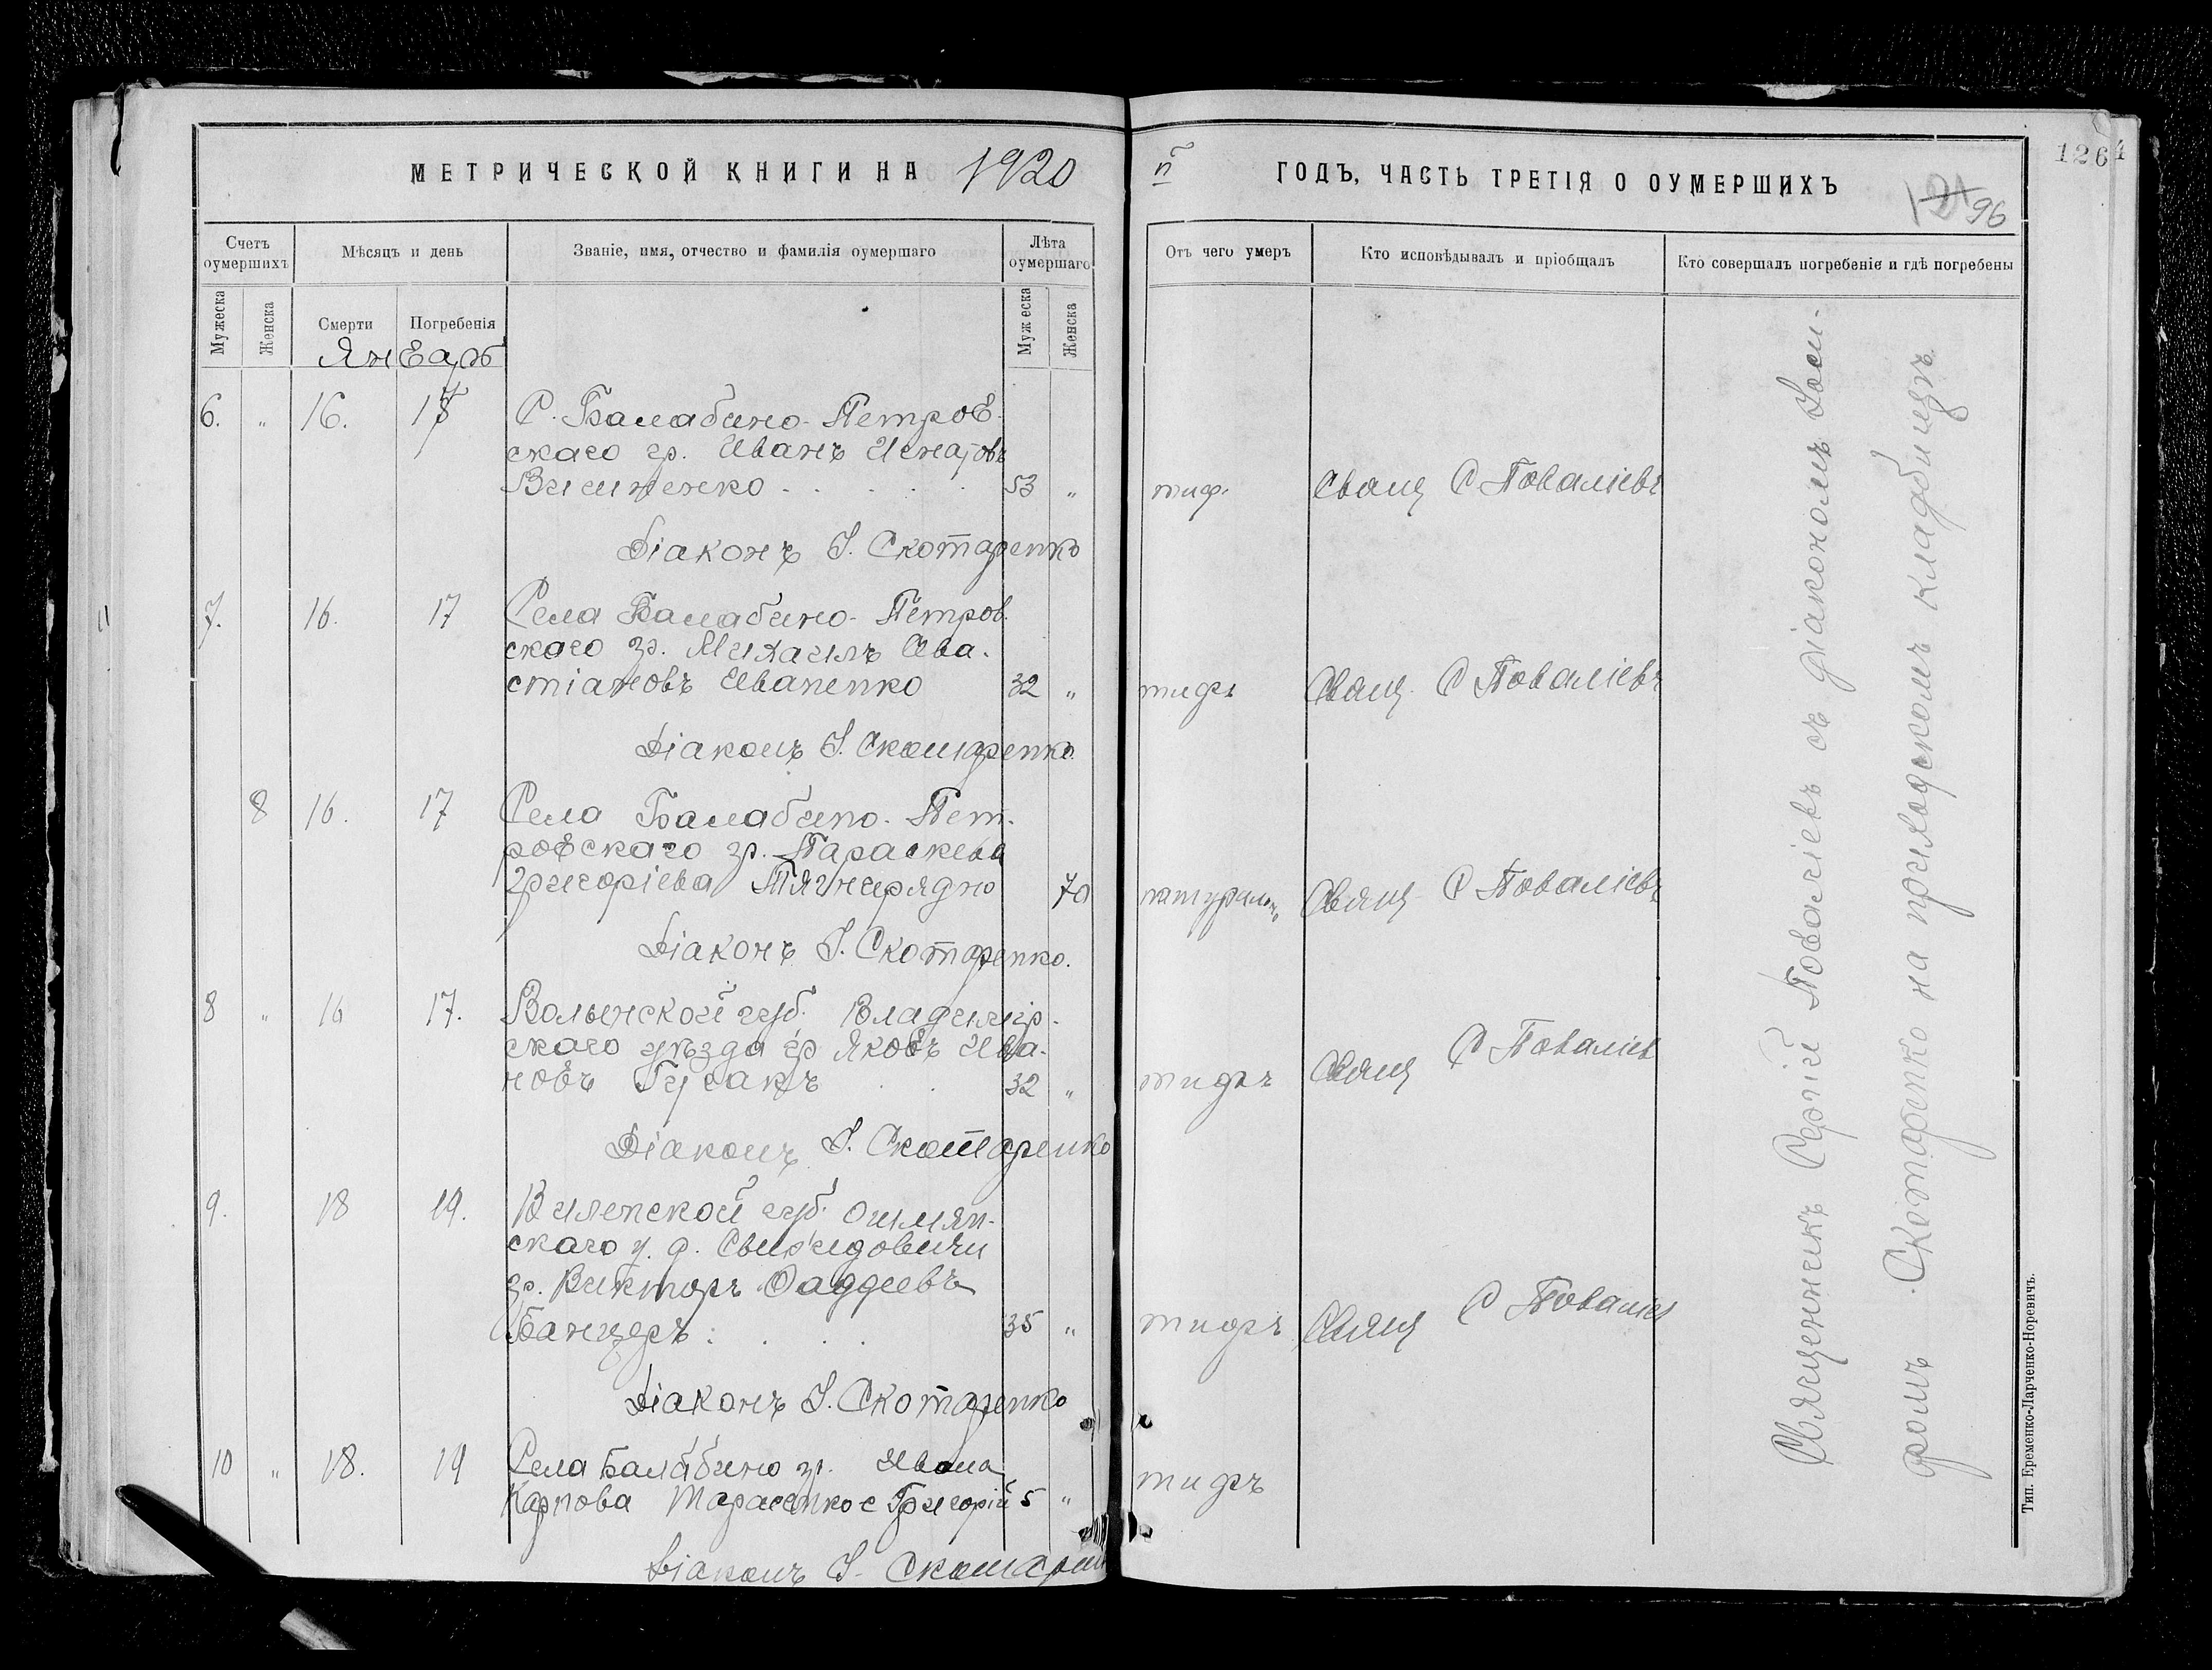 МЕТРИЧЕСКОЙ КНИГИ НА 1920
Счетъ оумершихъ
Мѣсяцъ и день
Званіе, имя, отчество и фамилія оумершаго
Лѣта оумершаго
Мужеска
Женска
Смерти
Погребенія
Мужеска
Женска
Январь
6. " 16. 17 С. Балабино-Петров-
скаго гр. Иванъ Игнатовъ
53 "
Діаконъ І. Скотаренко
7. 16. 17 Села Балабино-Петров.
скаго гр. Михаилъ Сева-
стіановъ Иваненко 32 "
Діаконъ І. Скотаренко
8 16. 17 Села Балабино-Пет-
ровскаго гр. Параскева
Григоріева Тягнирядно 70
Діаконъ І. Скотаренко.
8 " 16 17. Волынской губ. Владимір-
скаго уѣзда гр Яковъ Ива-
новъ Гусакъ 32 "
Діаконъ І. Скотаренко
9. 18 19. Виленской губ. Ошмян-
скаго у. д.
гр. Викторъ Фаддеевъ
Банцеръ. 35 "
Діаконъ І. Скотаренко
10 " 18. 19 Села Балабино гр. Ивана
Карпова Тарасенко с Григорій 5 "
Діаконъ І. Скотаренко
й
ГОДЪ, ЧАСТЬ ТРЕТІЯ О ОУМЕРШИХЪ
1264
96
Отъ чего умеръ
Кто исповѣдывалъ и пріобщалъ
Кто совершалъ погребеніе и гдѣ погребены
тиф. Свящ С Поваліевъ
тифъ Свящ. С Поваліевъ
натуральн. Свящ С Поваліевъ
тифъ Свящ С Поваліев
тифъ Свящ С Поваліев
тифъ
Священникъ Сергій Поваліевъ съ діакономъ Іоси-
фомъ Скотаренко на приходскомъ кладбищѣ
Тип. Еременко-Ларченко-Норевичъ.